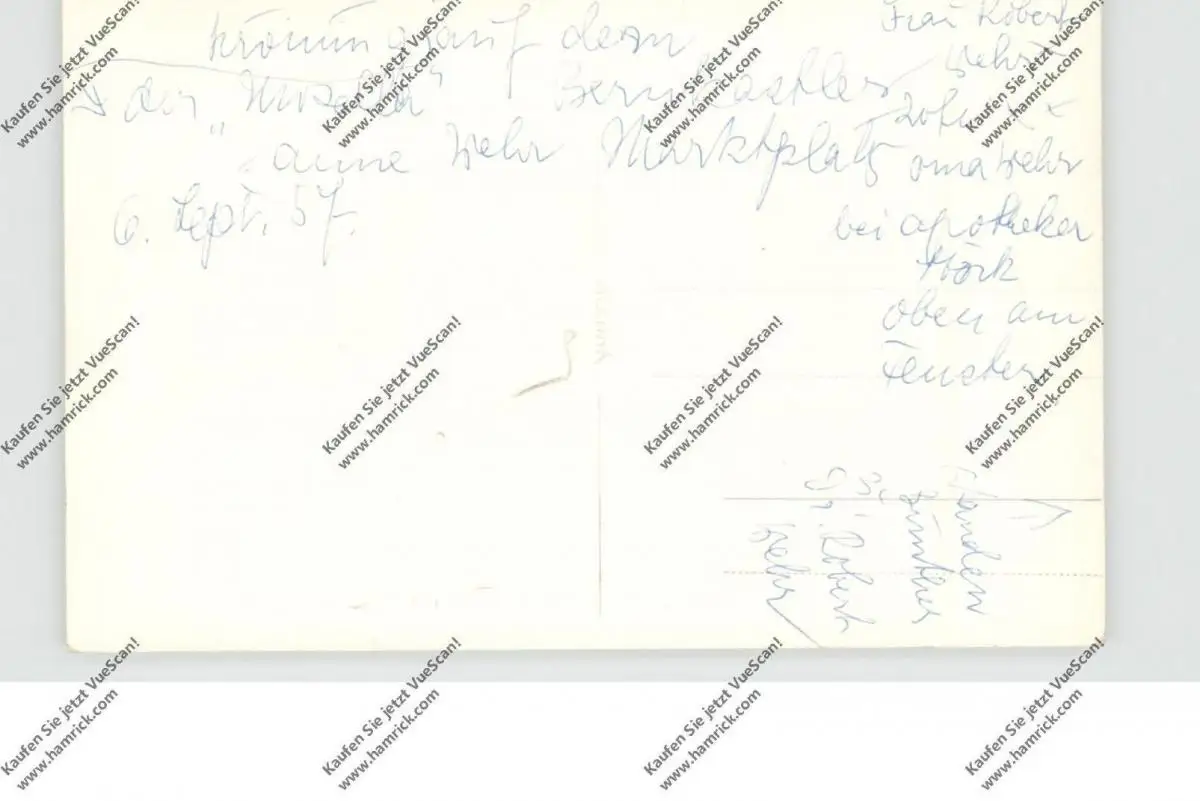 Krönung auf dem
der „Mosella" Bernkastler
Anne Wehr Marktplatz
6. Sept. 57.
Frau Robert
Wehr
Oma Wehr
bei Apotheker
Körk
oben am
Fenster
Günther
Dr. Robert
Wehr
Kaufen Sie jetzt VueScan!
www.hamrick.com